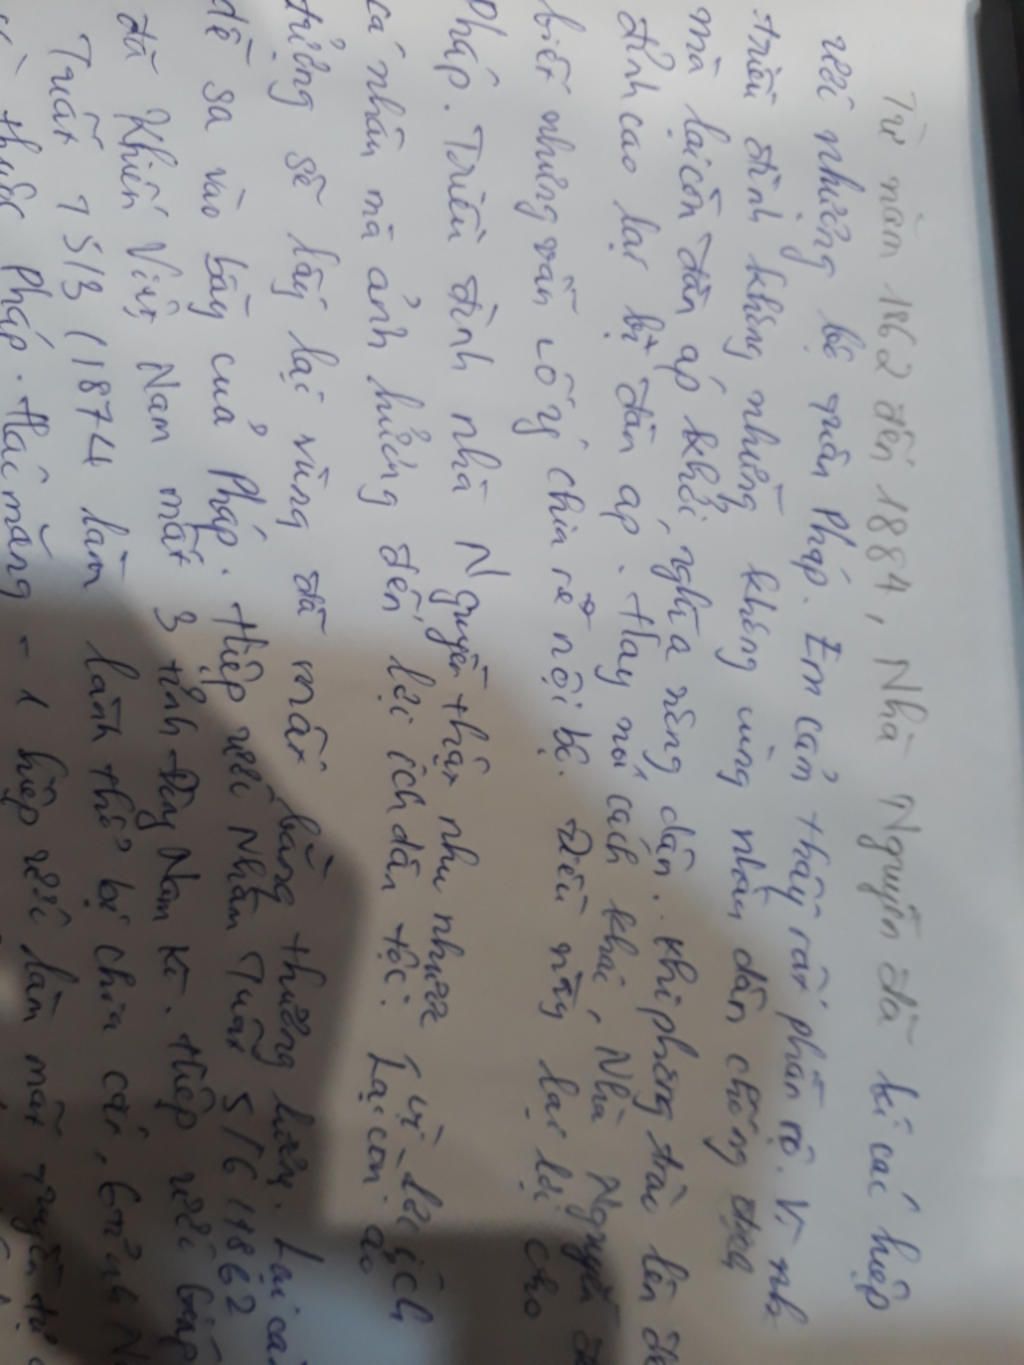 Từ năm 1862 đến 1884, Nhà Nguyễn đã kí các hiệp
ước nhượng bộ quân Pháp. Em cảm thấy rất phẫn nộ. Vì
triều đình không những không cùng nhân dân chống
mà lại còn đàn áp khởi nghĩa nông dân. Khi phong trào lên
đỉnh cao lại bị đàn áp. Hay nói cách khác, Nhà Nguyễn
biết nhưng vẫn cố ý chia rẽ nội bộ. Điều này lại lợi cho
Pháp. Triều đình nhà Nguyễn thật nhu nhược vì lợi ích
cá nhân mà ảnh hưởng đến lợi ích dân tộc. Lại còn ảo
tưởng sẽ lấy lại vùng đã mất bằng thương lượng. Lại
dễ sa vào bẫy của Pháp. Hiệp ước Nhâm Tuất 5/6/1862
đã khiến Việt Nam mất 3 tỉnh Đông Nam Kì. Hiệp ước
Tuất 15/3/1874 làm lãnh thổ bị chia cắt, 6 tỉnh
thuộc Pháp. Hác măng - 1 hiệp ước làm mất quyền tự